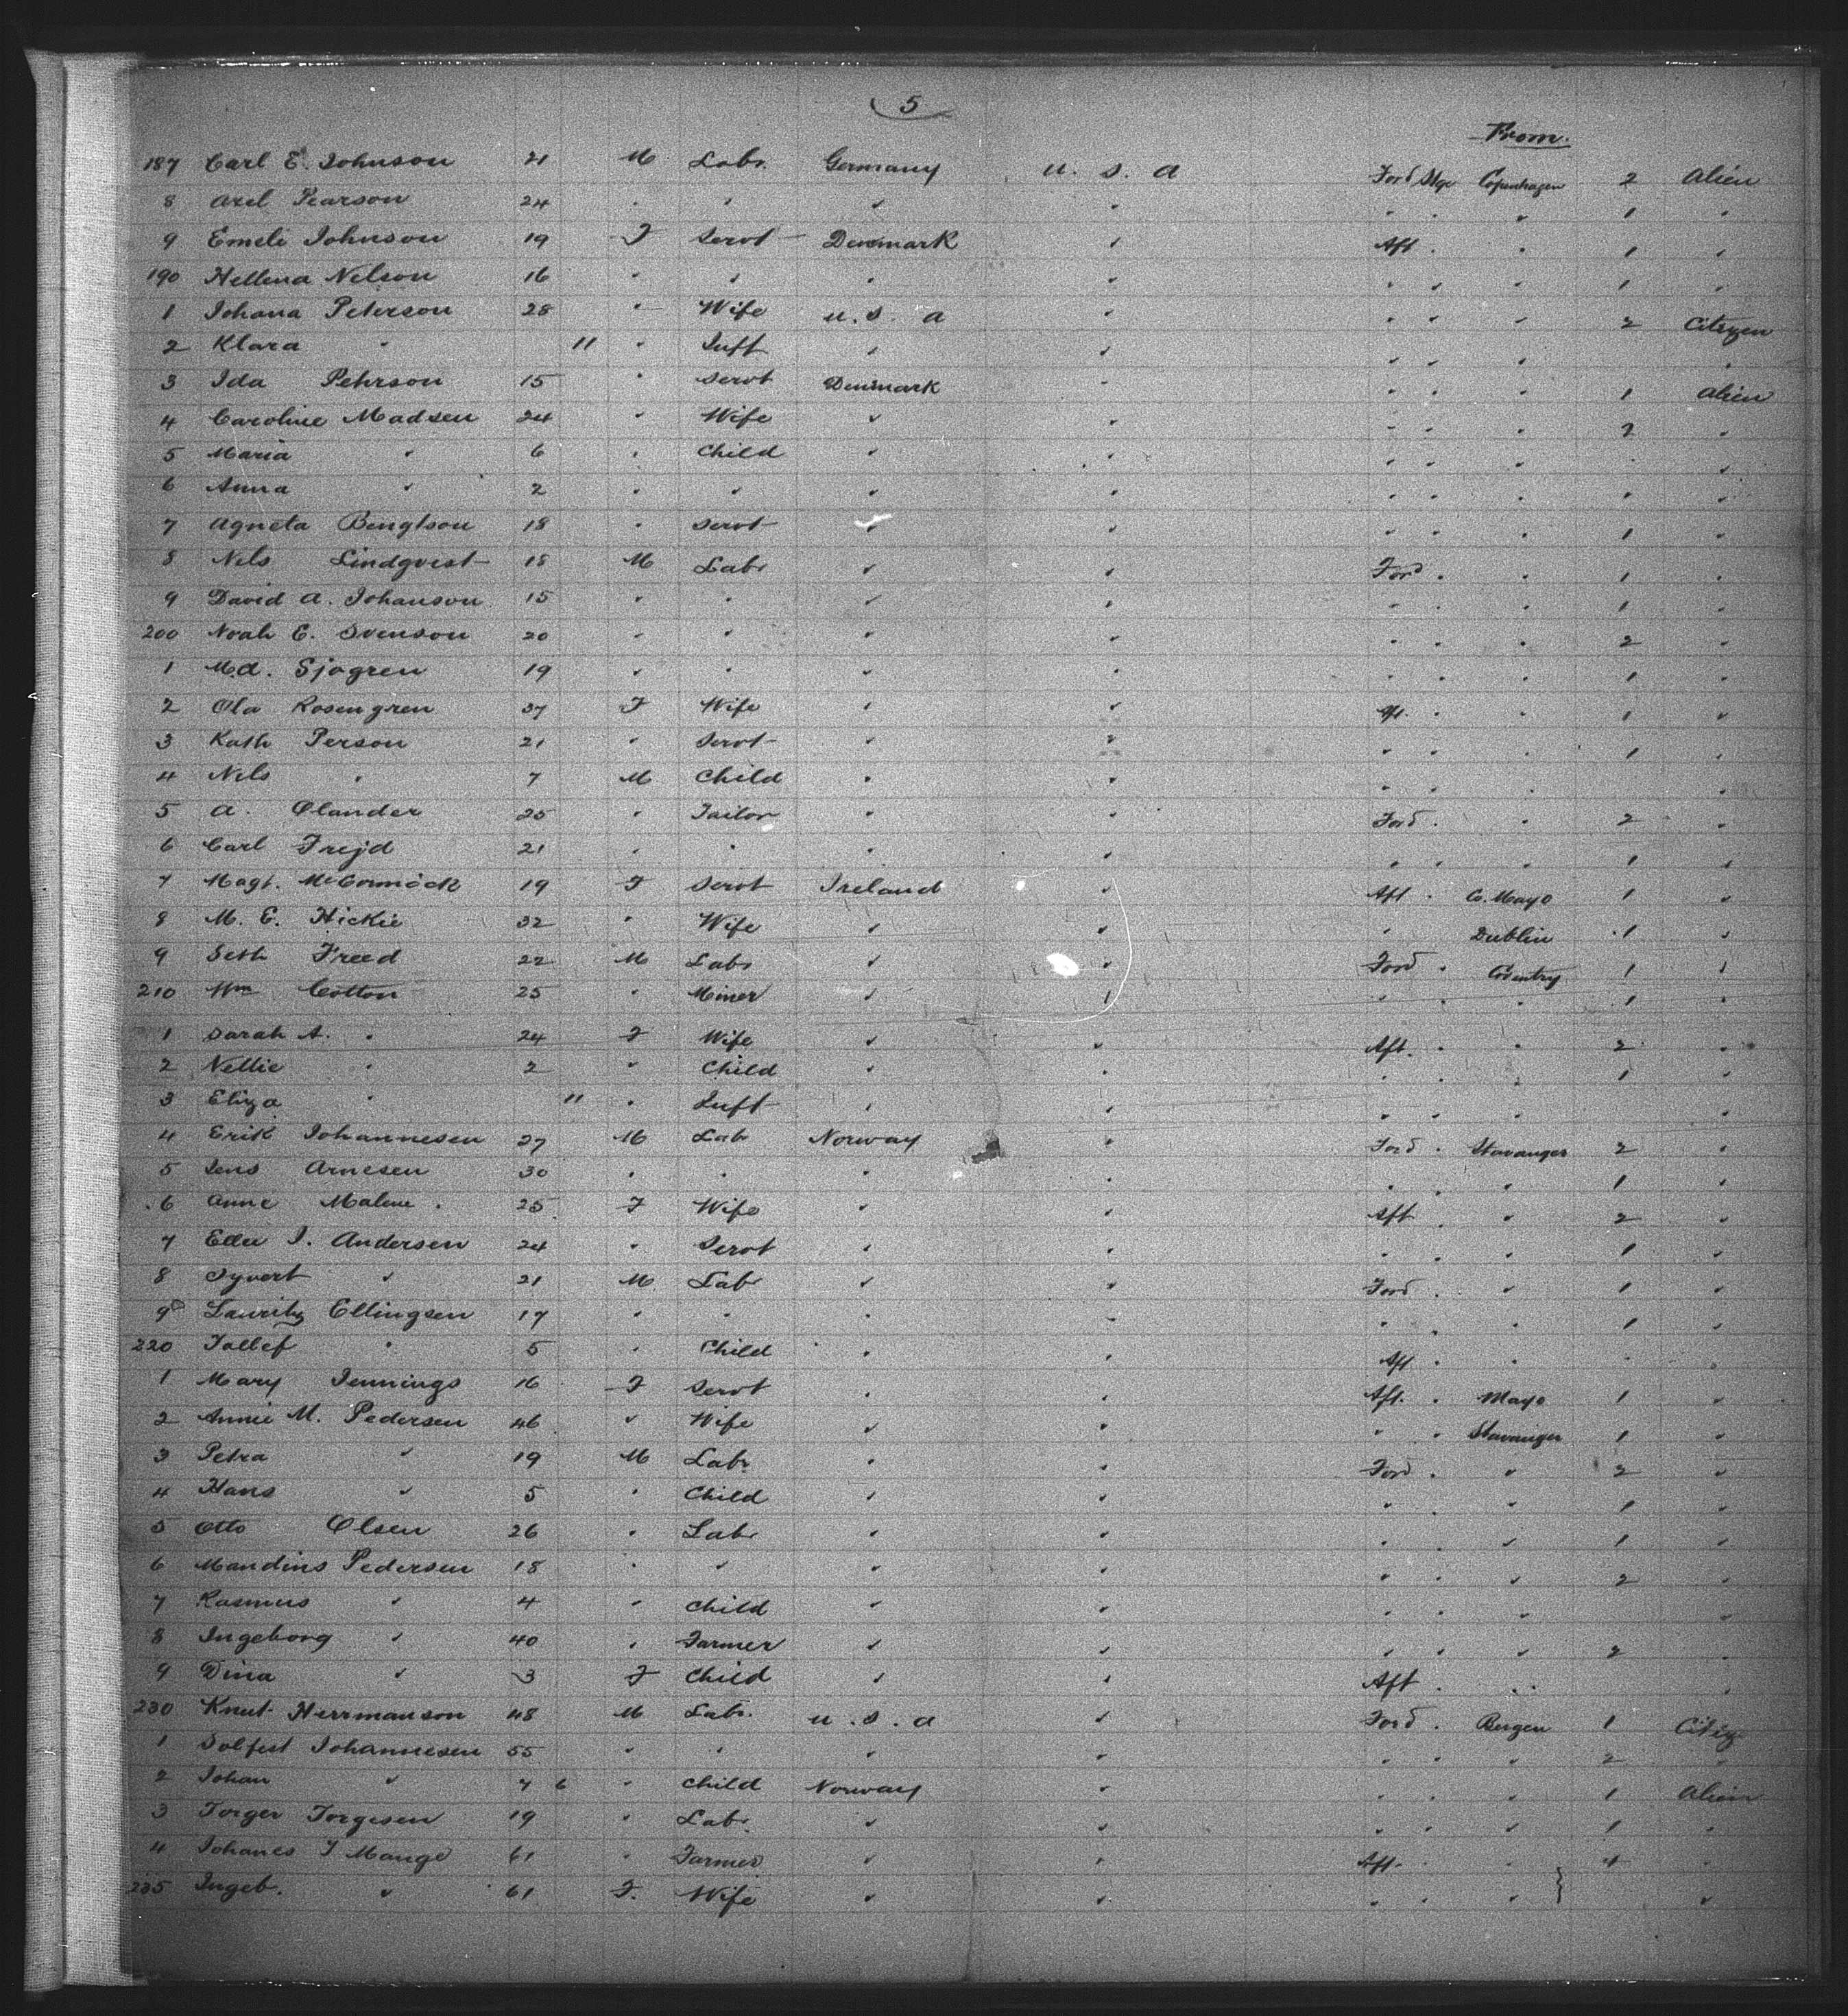 5
From.
187 Carl E. Johnson 21 M Labr. Germany U. S. A Ford Stge Copenhagen 2 Alien
8 Axel Pearson 24 " " " " " " " 1 "
9 Emeli Johnson 19 F Servt Denmark " Aft " " 1 "
190 Hellena Nelson 16 " " " " " " " 1 "
1 Johana Peterson 28 " Wife U. S. A " " " " 2 Citizen
2 Klara " 11 " Inft " " " " " "
3 Ida Pehrson 15 " Servt Denmark " " " " 1 Alien
4 Caroline Madsen 24 " Wife " " " " " 2 "
5 Maria " 6 " Child " " " " " "
6 Anna " 2 " " " " " " " " "
7 Agneta Bengtson 18 " Servt " " " " " 1 "
8 Nels Lindqvist 18 M Labr " " Ford " " 1 "
9 David A. Johanson 15 " " " " " " " 1 "
200 Noah E. Svenson 20 " " " " " " " 2 "
1 M.A. Sjogren 19 " " " " " " " 1 "
2 Ola Rosengren 37 F Wife " " Aft. " " 1 "
3 Kath Person 21 " Servt " " " " " 1 "
4 Nels " 7 M Child " " " " " "
5 A. Olander 25 " Tailor " " Ford " " 2 "
6 Carl Frejd 21 " " " " " " " 1 "
7 Magt. McCormick 19 F Servt Ireland " Aft " Co. Mayo 1 "
8 M. E. Hickie 32 " Wife " " " Dublin 1 "
9 Seth Freed 22 M Labr " " Ford " Coventry 1 "
210 Wm Cotton 25 " Miner " " " " " 1 "
1 Sarah A. " 24 F Wife " " Aft. " " 2 "
2 Nellie " 2 " Child " " " " " 1 "
3 Eliza " 11 " Inft " " " " " "
4 Erik Johannesen 27 M Lab Norway " Ford " Stavanger 2 "
5 Jens Arnesen 30 " " " " " " " 1 "
6 Anne Malene " 25 F Wife " " Aft " " 2 "
7 Ellu J. Andersen 24 " Servt " " " " " 1 "
8 Syvert " 21 M Labr " " Ford " " 1 "
9 Lauritz Ellingsen 17 " " " " " " " 1 "
220 Tallef " 5 " Child " " Aft " " " "
1 Mary Jennings 16 F Servt " " Aft. " Mayo 1 "
2 Annie M. Pedersen 46 " Wife " " " " Stavanger 1 "
3 Petra " 19 M Labr " " Ford " " 2 "
4 Hans " 5 " Child " " " " 1 "
5 Otto Olsen 26 " Labr " " " " " 1 "
6 Mandius Pedersen 18 " " " " " " " 2 "
7 Rasmus " 4 " Child " " " " " "
8 Ingeborg " 40 " Farmer " " " " " 2 "
9 Dina " 3 F Child " " Aft " " "
230 Knut Herrmanson 48 M Labr. U. S. A " Ford " Bergen 1 Citiz
1 Solfest Johannesen 55 " " " " " " " 2 "
2 Johan " 7 6 " Child Norway " " " " 1 Alien
3 Torger Torgesen 19 " Labr " " " " " 1 "
4 Johanes J Mange 61 " Farmer " " Aft " " 4 "
235 Ingeb. " 61 F. Wife " " " " " "